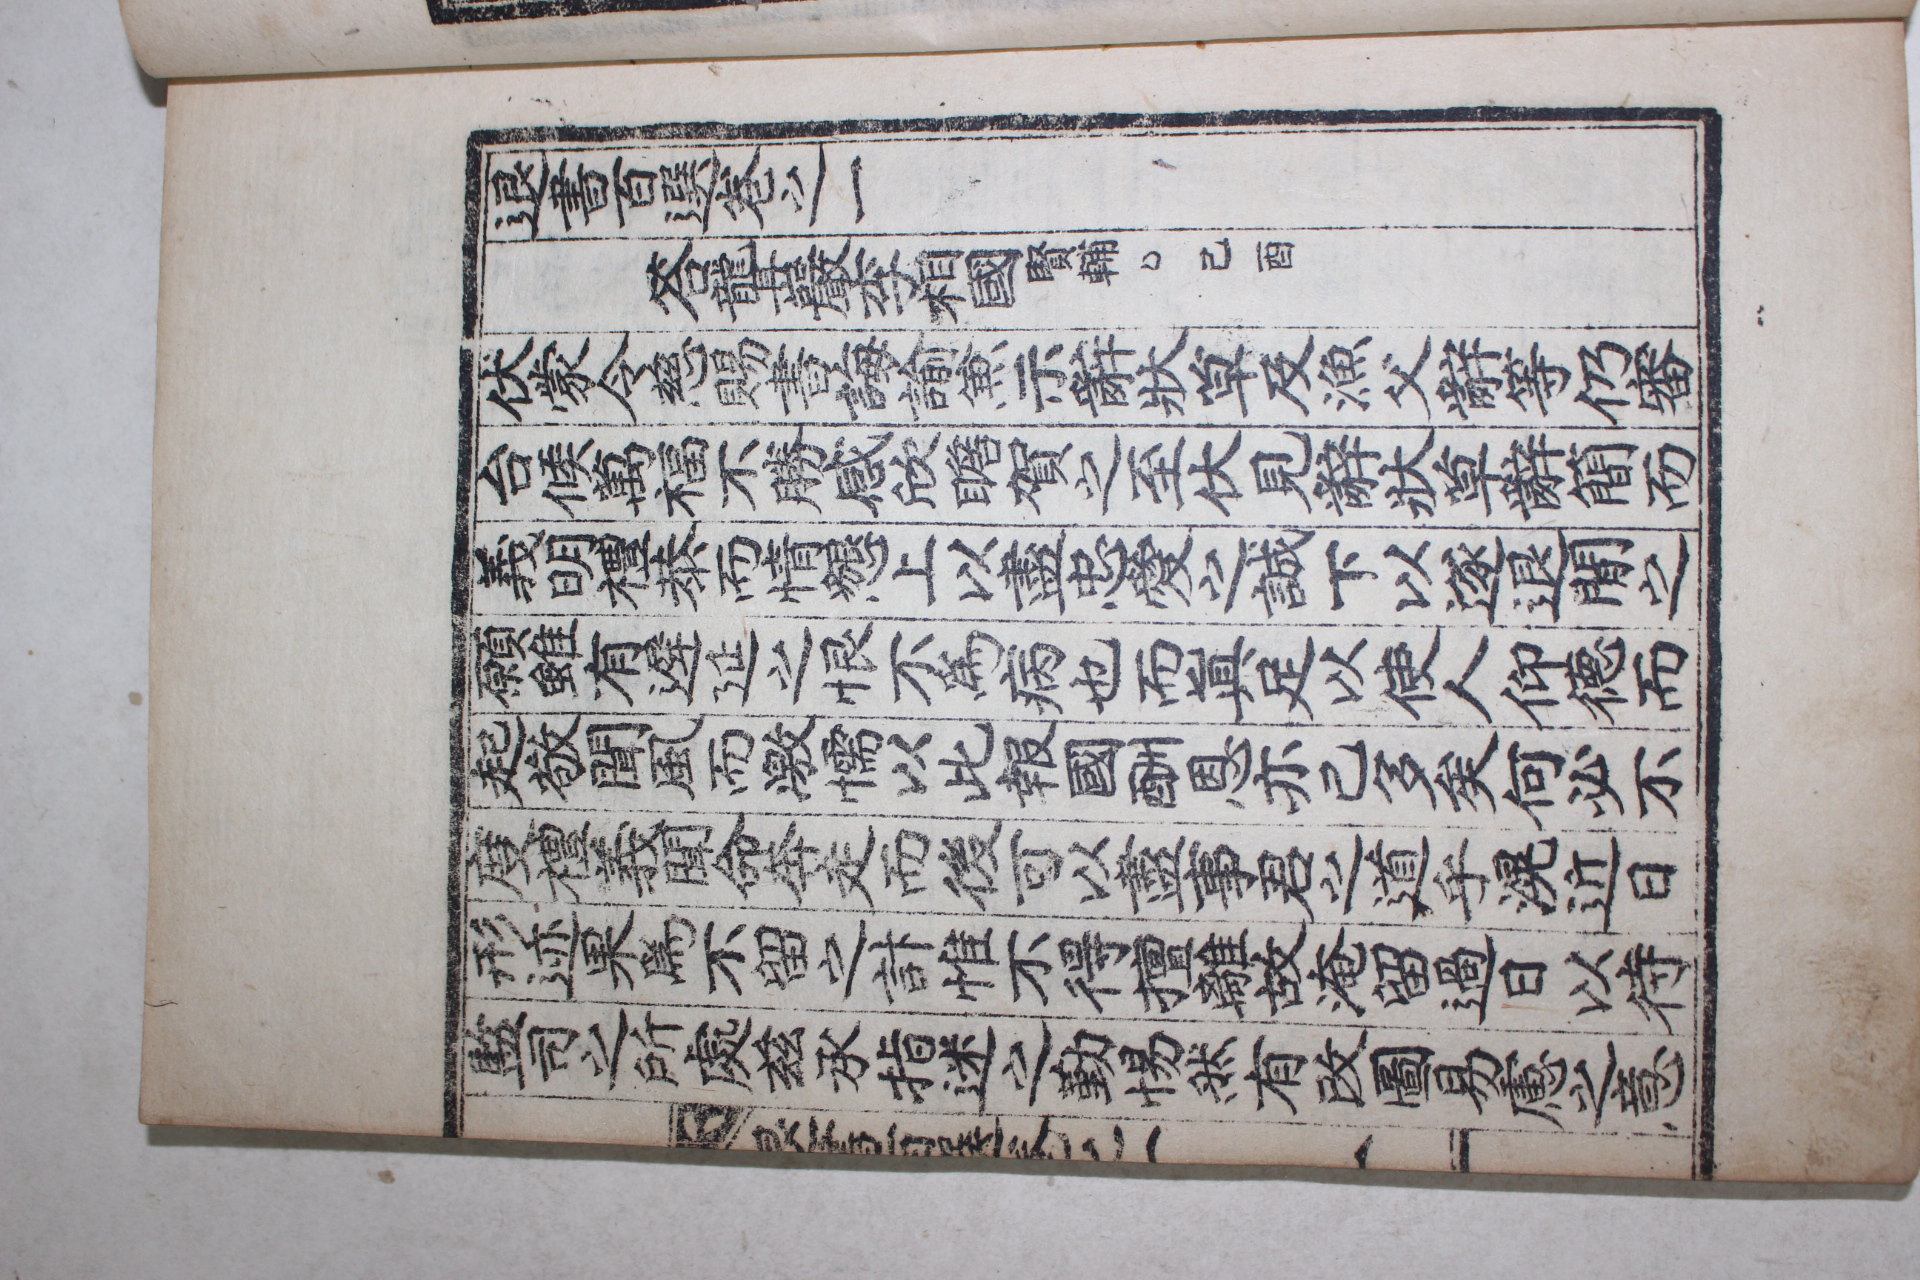 退書百選卷之一
答聾巖李相國賢輔○己酉
伏蒙令慈賜書諄諭兼示辭狀草及漁父辭等仍審
台候萬福不勝感欣瞻賀之至伏見辭狀草辭簡而
義明禮恭而情懇上以盡忠愛之誠下以遂退閒之
願雖有遲延之恨不爲病也而眞足以使人仰德而
起敬聞風而激懦以此報國酬恩亦已多矣何必不
度禮義聞命奔走而後可以盡事君之道乎滉近日
形迹果爲不留之計惟不得擅離故淹留過日以待
監司之所處玆承指迷之勤惕然有改圖易慮之意
退書百選卷之一 一